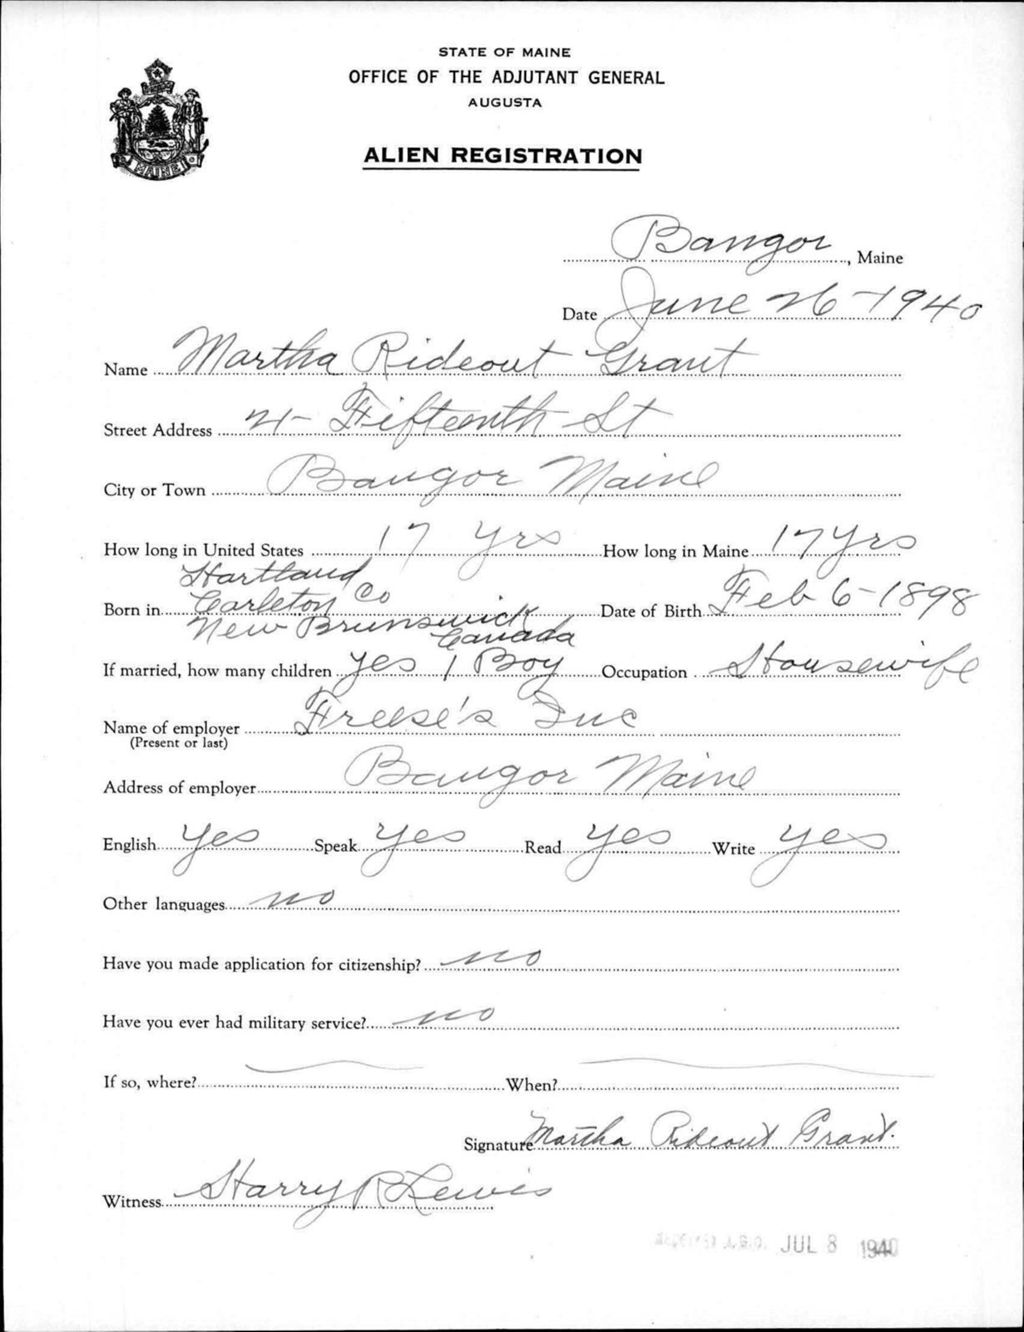 STATE OF MAINE
OFFICE OF THE ADJUTANT GENERAL
AUGUSTA
ALIEN REGISTRATION
MAINE
Bangor, Maine
Date June 26-1940
Name Martha Rideout Grant
Street Address 21- Fifteenth St
City or Town Bangor Maine
How long in United States 17 yrs How long in Maine 17 yrs
Born in Hartland Carleton Co New Brunswick Canada Date of Birth Feb 6-1898
If married, how many children yes 1 Boy Occupation Housewife
Name of employer Freese's Inc
(Present or last)
Address of employer Bangor Maine
English yes Speak yes Read yes Write yes
Other languages no
Have you made application for citizenship? no
Have you ever had military service? no
If so, where? When?
Signature Martha Rideout Grant.
Witness Harry R Lewis
A.G.O. JUL 8 1940